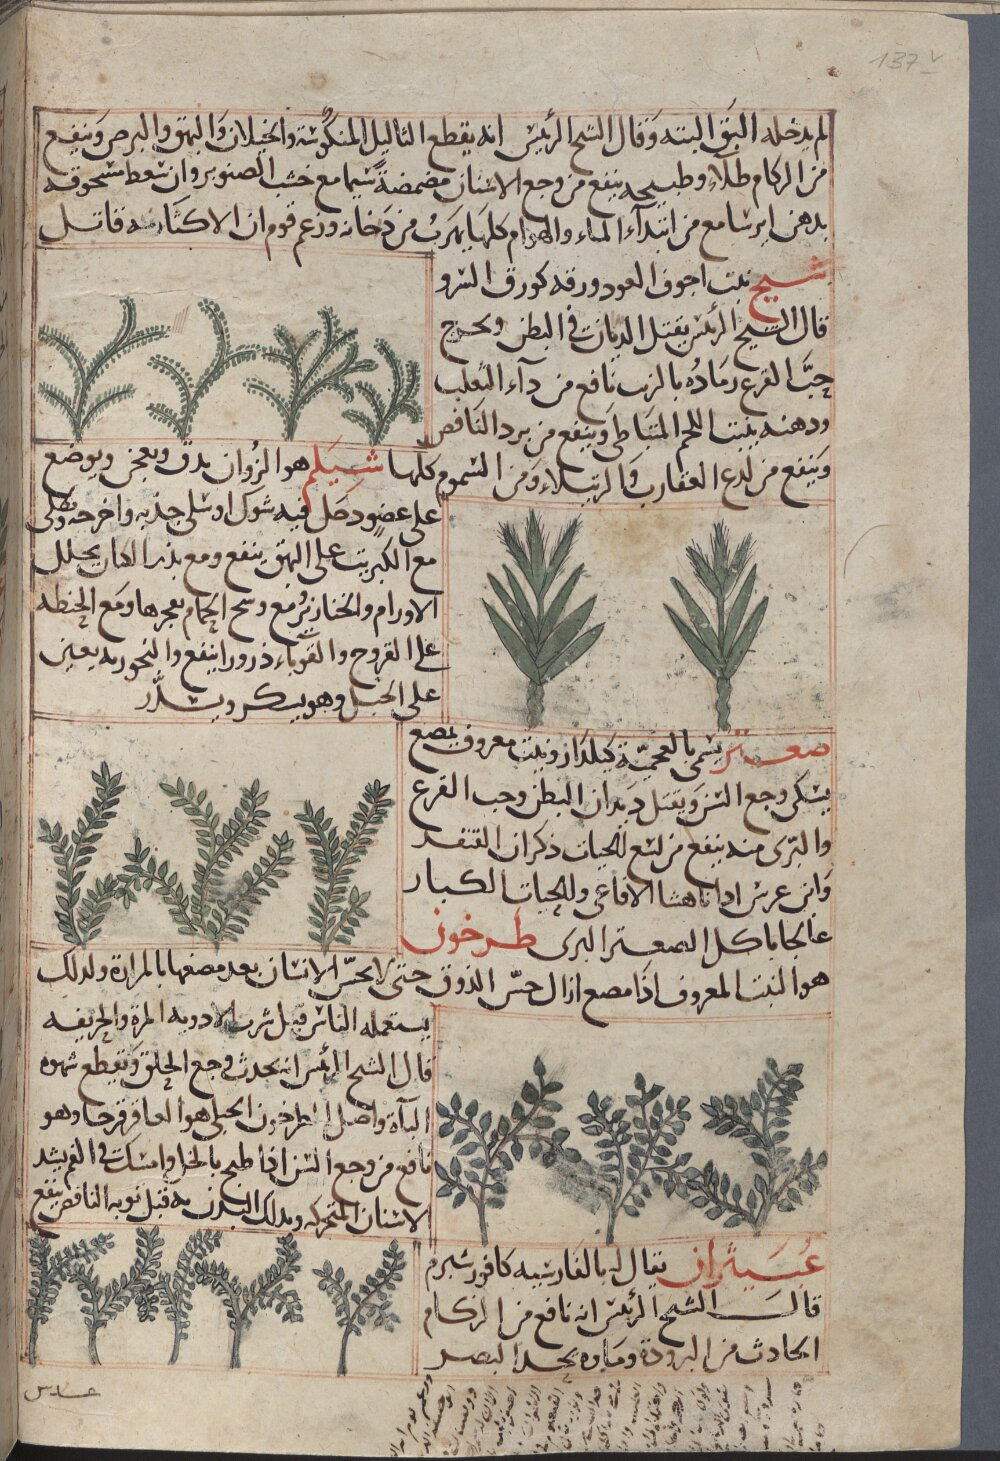 137v
لم يدخله البق البته وقال الشيخ الرئيس انه يقطع الثاليل المنكوسة والخيلان والبهق والبرص وينفع
من الزكام طلاء وطبيخه ينفع من وجع الاسنان مضمضة سيما مع خشب الصنوبر وان سعط مسحوقه
بدهن ايرسا مع من ابتداء الماء والهوام كلها يهرب من دخانه وزعم قوم ان الاكثار منه قاتل
شيح نبت اجوف العود ورقه كورق السرو
قال الشيخ الرئيس يقتل الديدان في البطن ويخرج
حب القرع رماده بالزيت نافع من داء الثعلب
ودهنه ينبت اللحم المتباطى وينفع من برد النافض
وينفع من لدغ العقارب والرتيلاء ومن السموم كلها
شيلم هو الزوان يدق ويعجن ويوضع
على عضو دخل فيه شوك او سلى جذبه واخرجه وتطلى
مع الكبريت على البهق ينفع ومع بذر الكتان يحلل
الاورام والخنازير ومع وسخ الحمام يفجرها ومع الحنطه
على القروح والقوباء ذرورا ينفع والبخور به يعين
على الحبل وهو يسكر ويسدر
صعتر يسمى بالعجمية كيلدارو نبت معروف يمضغ
يسكن وجع السن ويقتل ديدان البطن وحب القرع
والبرى منه ينفع من لسع الحيات ذكر ان القنفد
وابن عرس اذا ناهشا الافاعى والحيات الكبار
عالجا باكل الصعتر البرى طرخون
هو النبت المعروف اذا مضغ ازال حس الذوق حتى لا يحس الانسان بعد مضغها بالمرارة ولذلك
يستعمله الناس قبل شرب الادوية المرة والحريفه
قال الشيخ الرئيس انه يحدث وجع الحلق ويقطع شهوه
الباة واصل الطرخون الجبلى هو العاقر قرحا وهو
نافع من وجع السن اذا طبخ بالخل وامسك في الفم يشد
الاسنان المتحركه ويدلك البدن به قبل نوبة النافض ينفع
عبيثران يقال له بالفارسيه كافور سبرم
قال الشيخ الرئيس انه نافع من الزكام
الحادث من البرودة وماوه يحد البصر
عدس